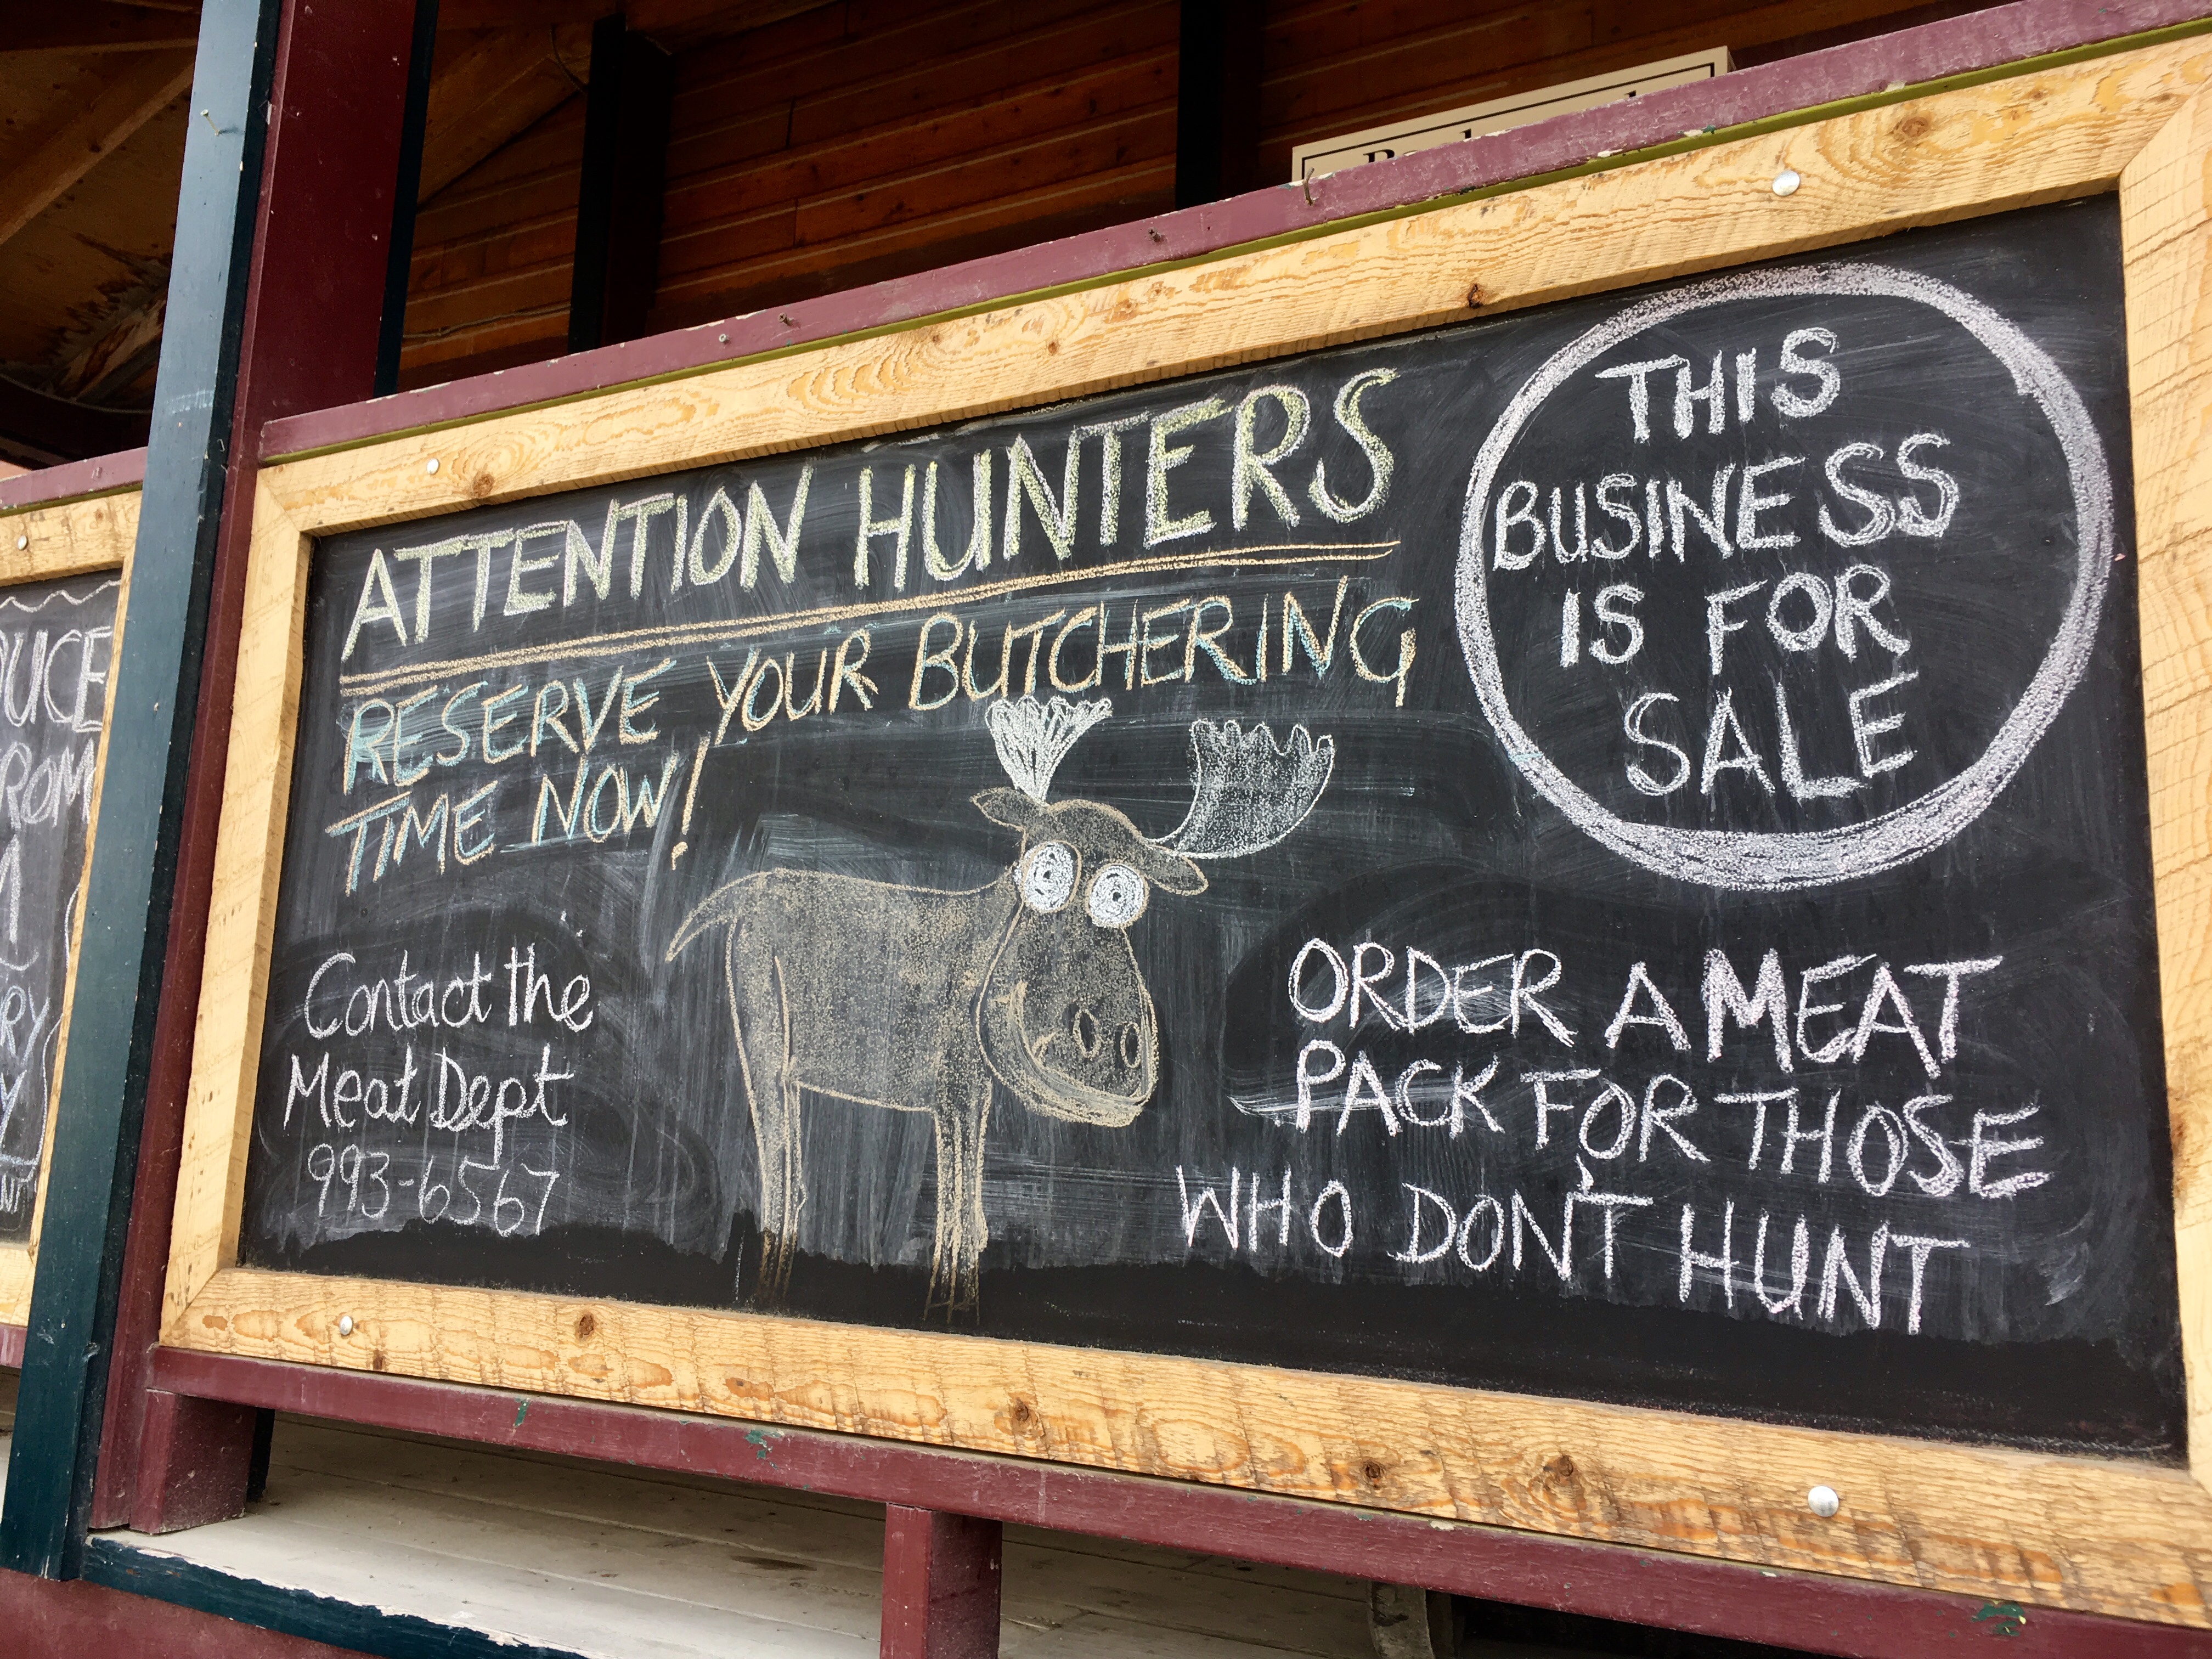 ATTENTION HUNTERS
RESERVE YOUR BUTCHERING
TIME NOW!
Contact the
Meat Dept
993-6567
THIS
BUSINESS
IS FOR
SALE
ORDER A MEAT
PACK FOR THOSE
WHO DON'T HUNT